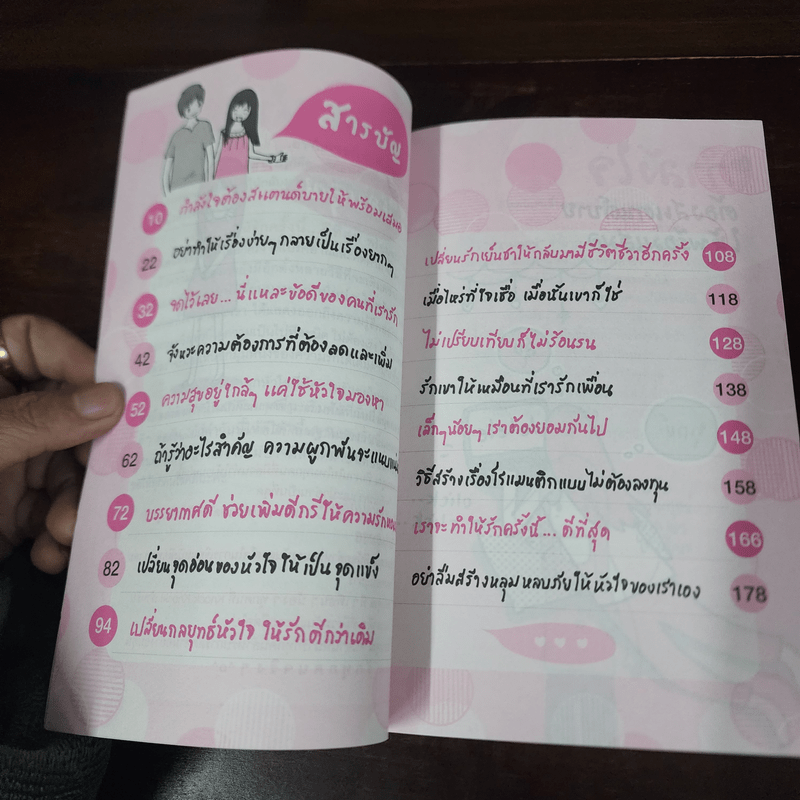 สารบัญ
10 กำลังใจต้องสแตนด์บายให้พร้อมเสมอ
22 อย่าทำให้เรื่องง่ายๆ กลายเป็นเรื่องยากๆ
32 จดไว้เลย... นี่แหละข้อดีของคนที่เรารัก
42 จังหวะความต้องการที่ต้องลดและเพิ่ม
52 ความสุขอยู่ใกล้ๆ แค่ใช้หัวใจมองหา
62 ถ้ารู้ว่าอะไรสำคัญ ความผูกพันจะแนบแน่น
72 บรรยากาศดี ช่วยเพิ่มดีกรีให้ความรัก
82 เปลี่ยนจุดอ่อนของหัวใจ ให้เป็นจุดแข็ง
94 เปลี่ยนกลยุทธ์หัวใจ ให้รักดีกว่าเดิม
เปลี่ยนรักเย็นชาให้กลับมามีชีวิตชีวาอีกครั้ง 108
เมื่อไหร่ที่ใจเชื่อ เมื่อนั้นเขาก็ใช่ 118
ไม่เปรียบเทียบก็ไม่ร้อนรน 128
รักเขาให้เหมือนที่เรารักเพื่อน 138
เล็กๆน้อยๆ เราต้องยอมกันไป 148
วิธีสร้างเรื่องโรแมนติกแบบไม่ต้องลงทุน 158
เราจะทำให้รักครั้งนี้... ดีที่สุด 166
อย่าลืมสร้างหลุมหลบภัยให้หัวใจของเราเอง 178